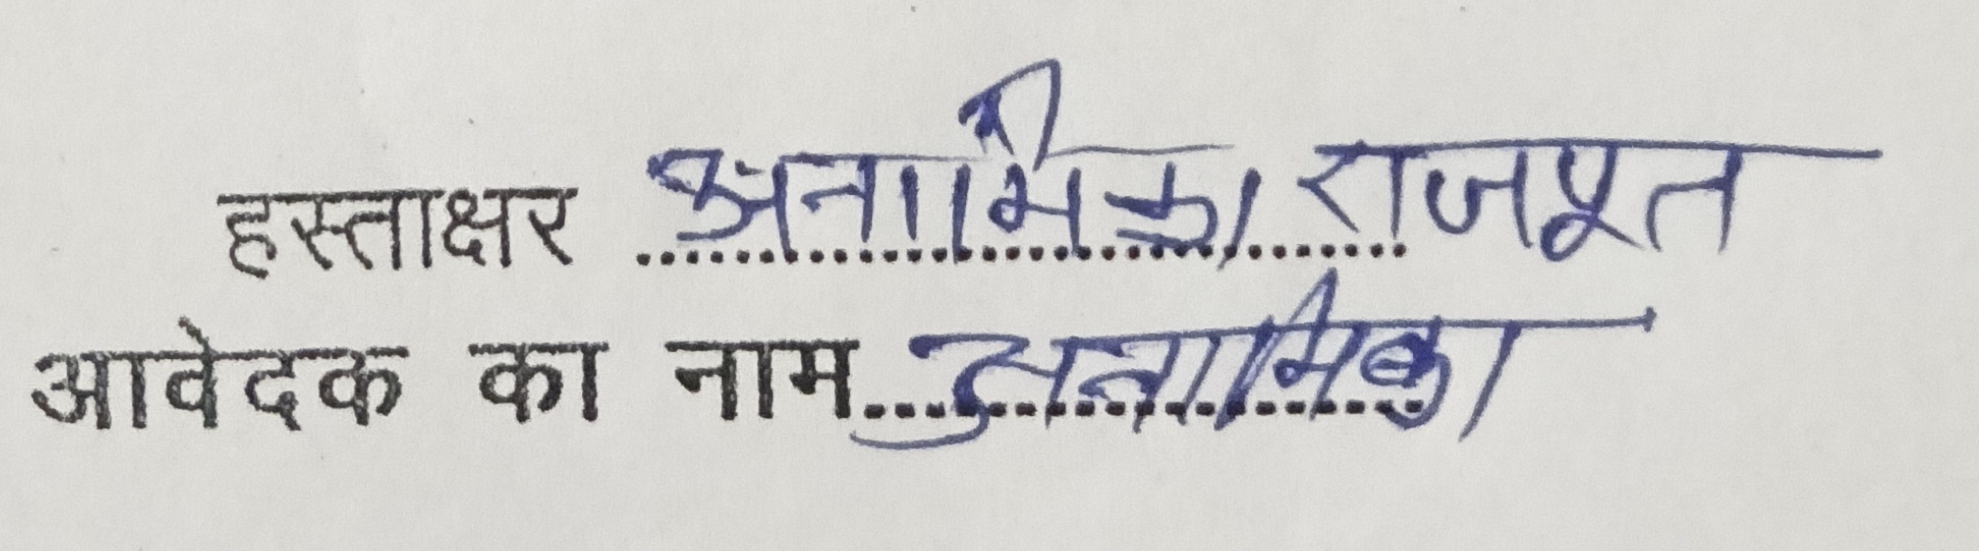 हस्ताक्षर ........ अनामिका राजपूत
आवेदक का नाम ........ अनामिका